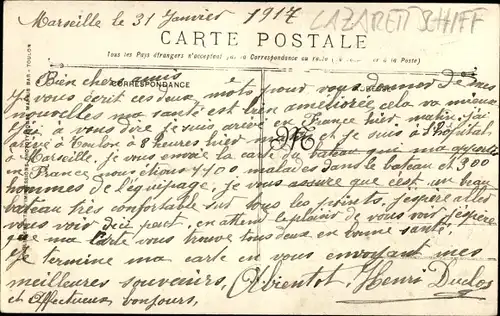 Marseille le 31 Janvier 1917
LAZARETTSCHIFF
CARTE POSTALE
Tous les Pays étrangers n'acceptent pas la Correspondance au recto (à la Poste)
CORRESPONDANCE
Bien cher amis
Je vous écrit ces deux mots pour vous donner de mes
nouvelles ma santé est bien améliorée cela va mieux
j'ai a vous dire je suis arrivé en France hier matin. j'ai
arrivé à Toulon à 8 heures hier matin et je suis à l'hopital
à Marseille, je vous envoie la carte du bateau qui ma apporté
en France, nous étions 1400 malades dans le bateau et 300
hommes de l'équipage, je vous assure que c'est un beau
bateau très confortable sur tous les points, j'espère aller
vous voir d'ici peut. en attend le plaisir de vous voir j'espère
que ma carte vous trouve tous deux en bonne santé.
Je termine ma carte en vous envoyant mes
meilleures souvenirs, Abientot, Henri Duclos
et affectueux bonjours,